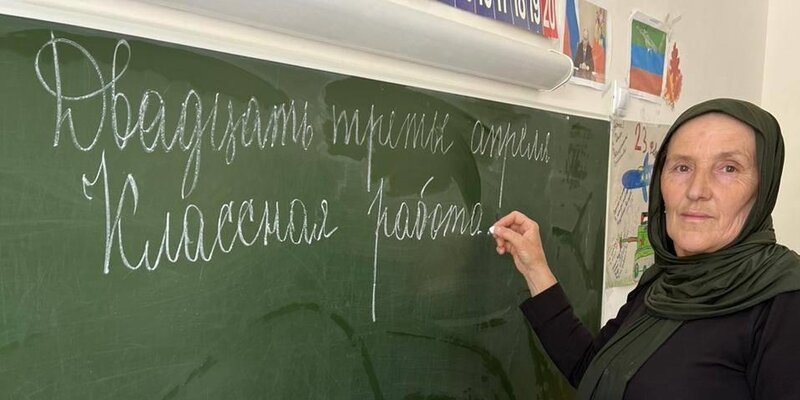 Двадцать третье апреля
Классная работа.
17 18 19 20
23